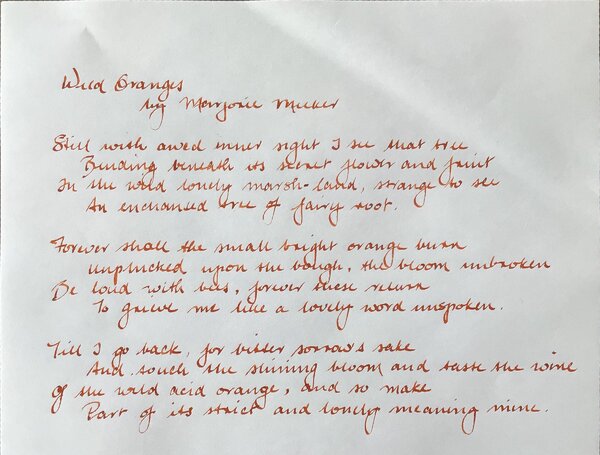 Wild Oranges
by Marjorie Meeker
Still with awed inner sight I see that tree
Bending beneath its secret flower and fruit
In the wild lonely marsh-land, strange to see
An enchanted tree of fairy root.
Forever shall the small bright orange burn
Unplucked upon the bough, the bloom unbroken
Be loud with bees, forever these return
To grieve me like a lovely word unspoken.
Till I go back, for bitter sorrow's sake
And touch the shining bloom and taste the wine
Of the wild acid orange, and so make
Part of its strict and lonely meaning mine.